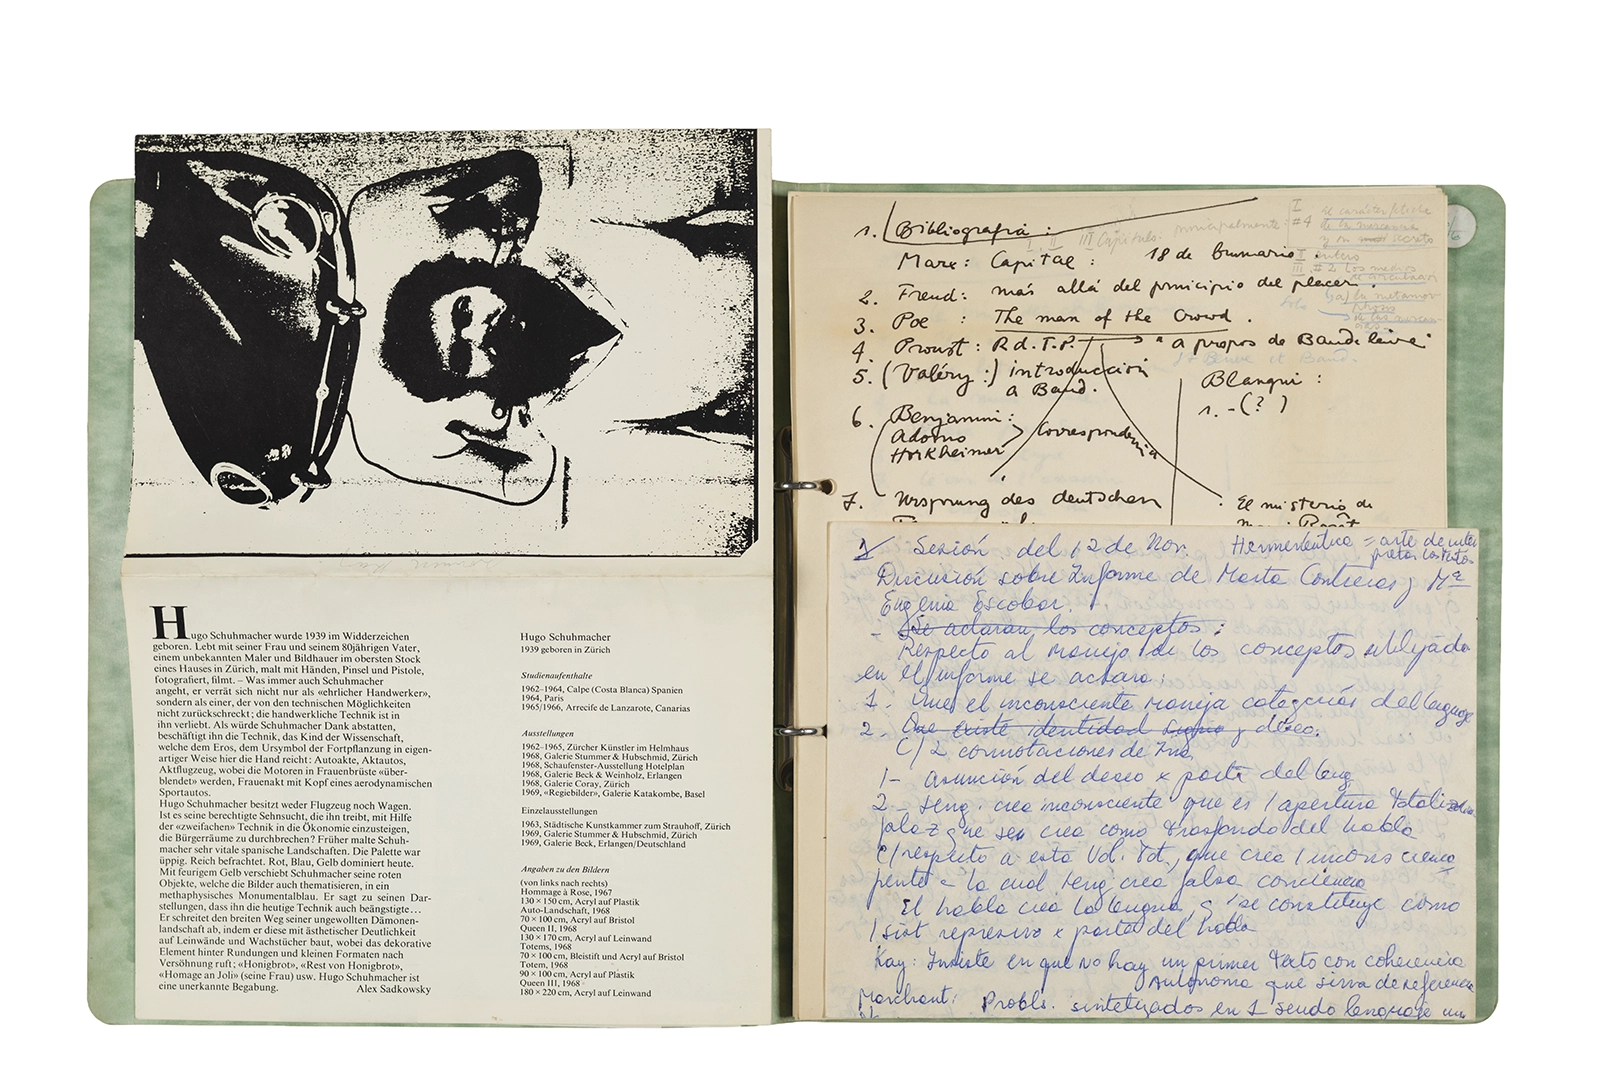 Hugo Schuhmacher wurde 1939 im Widderzeichen
geboren. Lebt mit seiner Frau und seinem 80jährigen Vater,
einem unbekannten Maler und Bildhauer im obersten Stock
eines Hauses in Zürich, malt mit Händen, Pinsel und Pistole,
fotografiert, filmt. – Was immer auch Schuhmacher
angeht, er verrät sich nicht nur als «ehrlicher Handwerker»,
sondern als einer, der von den technischen Möglichkeiten
nicht zurückschreckt; die handwerkliche Technik ist in
ihn verliebt. Als würde Schuhmacher Dank abstatten,
beschäftigt ihn die Technik, das Kind der Wissenschaft,
welche dem Eros, dem Ursymbol der Fortpflanzung in eigen-
artiger Weise hier die Hand reicht: Autoakte, Aktautos,
Aktflugzeug, wobei die Motoren in Frauenbrüste «über-
blendet» werden, Frauenakt mit Kopf eines aerodynamischen
Sportautos.
Hugo Schuhmacher besitzt weder Flugzeug noch Wagen.
Ist es seine berechtigte Sehnsucht, die ihn treibt, mit Hilfe
der «zweifachen» Technik in die Ökonomie einzusteigen,
die Bürgerräume zu durchbrechen? Früher malte Schuh-
macher sehr vitale spanische Landschaften. Die Palette war
üppig. Reich befrachtet. Rot, Blau, Gelb dominiert heute.
Mit feurigem Gelb verschiebt Schuhmacher seine roten
Objekte, welche die Bilder auch thematisieren, in ein
methaphysisches Monumentalblau. Er sagt zu seinen Dar-
stellungen, dass ihn die heutige Technik auch beängstigte…
Er schreitet den breiten Weg seiner ungewollten Dämonen-
landschaft ab, indem er diese mit ästhetischer Deutlichkeit
auf Leinwände und Wachstücher baut, wobei das dekorative
Element hinter Rundungen und kleinen Formaten nach
Versöhnung ruft; «Honigbrot», «Rest von Honigbrot»,
«Homage an Joli» (seine Frau) usw. Hugo Schuhmacher ist
eine unerkannte Begabung. Alex Sadkowsky
Hugo Schuhmacher
1939 geboren in Zürich
Studienaufenthalte
1962–1964, Calpe (Costa Blanca) Spanien
1964, Paris
1965/1966, Arrecife de Lanzarote, Canarias
Ausstellungen
1962–1965, Zürcher Künstler im Helmhaus
1968, Galerie Stummer & Hubschmid, Zürich
1968, Schaufenster-Ausstellung Hotelplan
1968, Galerie Beck & Weinholz, Erlangen
1968, Galerie Coray, Zürich
1969, «Regiebilder», Galerie Katakombe, Basel
Einzelausstellungen
1963, Städtische Kunstkammer zum Strauhoff, Zürich
1969, Galerie Stummer & Hubschmid, Zürich
1969, Galerie Beck, Erlangen/Deutschland
Angaben zu den Bildern
(von links nach rechts)
Hommage à Rose, 1967
130 × 150 cm, Acryl auf Plastik
Auto-Landschaft, 1968
70 × 100 cm, Acryl auf Bristol
Queen II, 1968
130 × 170 cm, Acryl auf Leinwand
Totems, 1968
70 × 100 cm, Bleistift und Acryl auf Bristol
Totem, 1968
90 × 100 cm, Acryl auf Plastik
Queen III, 1968
180 × 220 cm, Acryl auf Leinwand
1. Bibliografia :
I, II III Capítulo. principalmente:
I #4 El carácter fetiche
de la mercancía
y su secreto
Marx: Capital : 18 de brumario.
2. Freud: más allá del principio del placer.
3. Poe : The man of the Crowd.
4. Proust: R. d. T. P. → "a propos de Baudelaire"
5. (Valéry:) introducción
a Baud.
Blanqui :
1. - (?)
6. Benjamin:
Adorno
Horkheimer
Correspondencia
7. Ursprung des deutschen
El misterio de
1 Sesión del 12 de Nov. Hermenéutica = arte de inter
pretar los textos
Discusión sobre Informe de Marta Contreras y Mª
Eugenia Escobar.
- Se aclaran los conceptos :
Respecto al manejo de los conceptos utilizados
en el informe se aclara:
1. Que el inconsciente maneja categorías del lenguaje
2. Que existe identidad signo y deseo.
C/ 2 connotaciones de
1- Asunción del deseo x parte del leng.
2- Leng. crea inconsciente que es 1 apertura totaliza
que crea como trasfondo del habla
C/respecto a esta Vol. Tot., que crea 1 inconsciencia
la cual leng crea falsa conciencia
El habla crea la lengua, se constituye como
1 sist represivo x parte del habla
Kay: Insiste en que no hay un primer texto con coherencia
autónoma que sirva de referencia
Marchant: Probls. sintetizados en 1 sendo lenguaje un